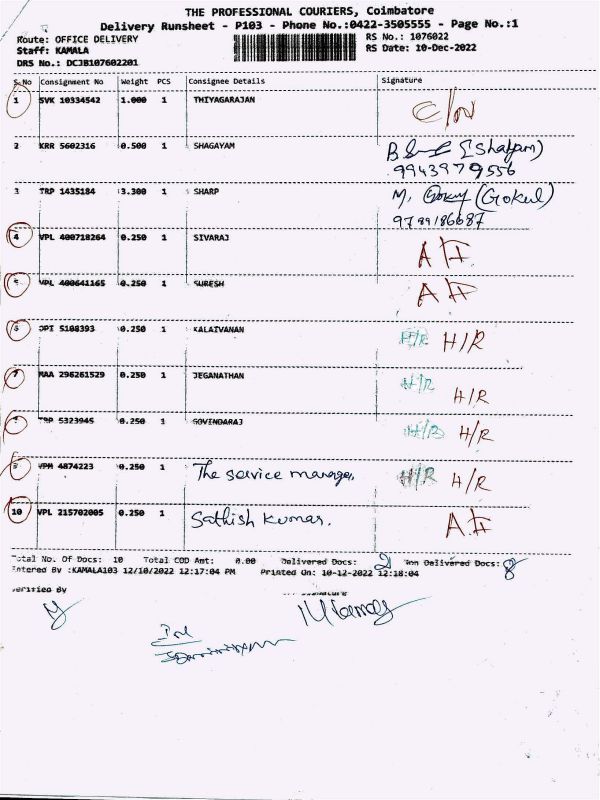 THE PROFESSIONAL COURIERS, Coimbatore
Delivery Runsheet - P103 - Phone No.:0422-3505555 - Page No.:1
Route: OFFICE DELIVERY
RS No.: 1076022
Staff: KAMALA
RS Date: 10-Dec-2022
DRS No.: DCJB107602201
S.No Consignment No Weight PCS Consignee Details Signature
1 SVK 10334542 1.000 1 THIYAGARAJAN
2 KRR 5602316 0.500 1 SHAGAYAM
9943979556
3 TRP 1435184 3.300 1 SHARP M. (Gokul)
9789186687
4 VPL 400718264 0.250 1 SIVARAJ
5 VPL 400641165 0.250 1 SURESH
6 OPI 5108393 0.250 1 KALAIVANAN H/R H/R
7 MAA 296261529 0.250 1 JEGANATHAN H/R
H/R
TRP 5323945 0.250 1 GOVINDARAJ H/R H/R
9 VPM 4874223 0.250 1 The service manager, H/R H/R
10 VPL 215702005 0.250 1 Sathish Kumar.
Total No. Of Docs: 10 Total COD Amt: 0.00 Delivered Docs: 2 Non Delivered Docs: 8
Entered By :KAMALA103 12/10/2022 12:17:04 PM Printed On: 10-12-2022 12:18:04
Verified By